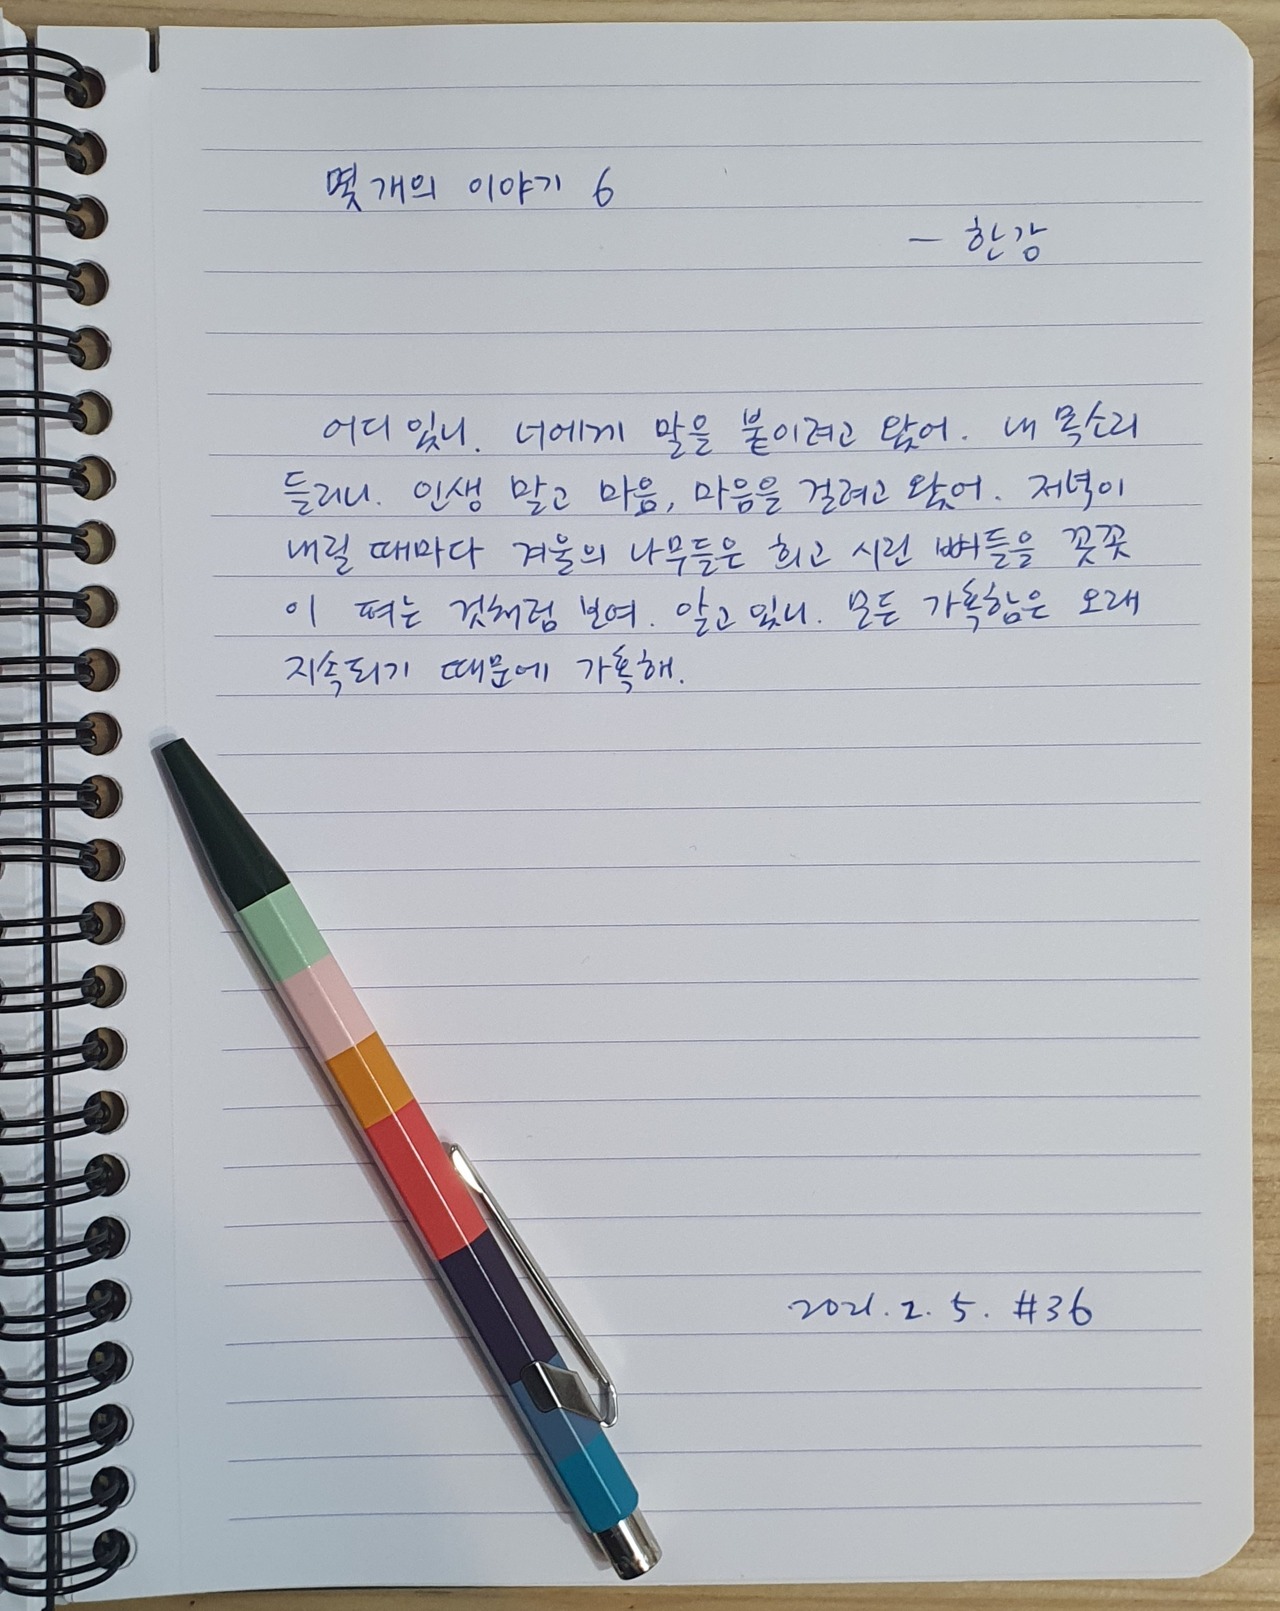 몇 개의 이야기 6
- 한강
어디 있니. 너에게 말을 붙이려고 왔어. 내 목소리
들리니. 인생 말고 마음, 마음을 걸려고 왔어. 저녁이
내릴 때마다 겨울의 나무들은 희고 시린 뼈들을 꼿꼿
이 펴는 것처럼 보여. 알고 있니. 모든 가혹함은 오래
지속되기 때문에 가혹해.
2021. 2. 5. #36